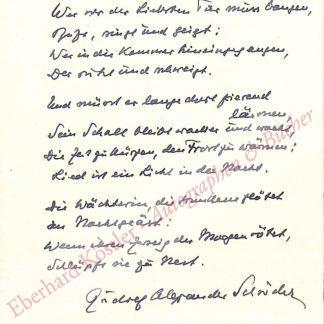 Wer vor der Liebsten Tür muss bangen,
singt und geigt:
Wer in die Kammer hineingegangen,
Der ruht und schweigt.
Und müsst er lange dort frierend
lärmen,
Sein Schall bleibt wacher und wacht,
Die Zeit zu kürzen, den Frost zu wärmen:
Lied ist ein Licht in der Nacht.
Die Wächterin, die
der
Wenn ihren Zweig der Morgen rötet,
Schlüpft sie zu Nest.
Rudolf Alexander Schröder
Eberhard Köstler Autographen & Bücher